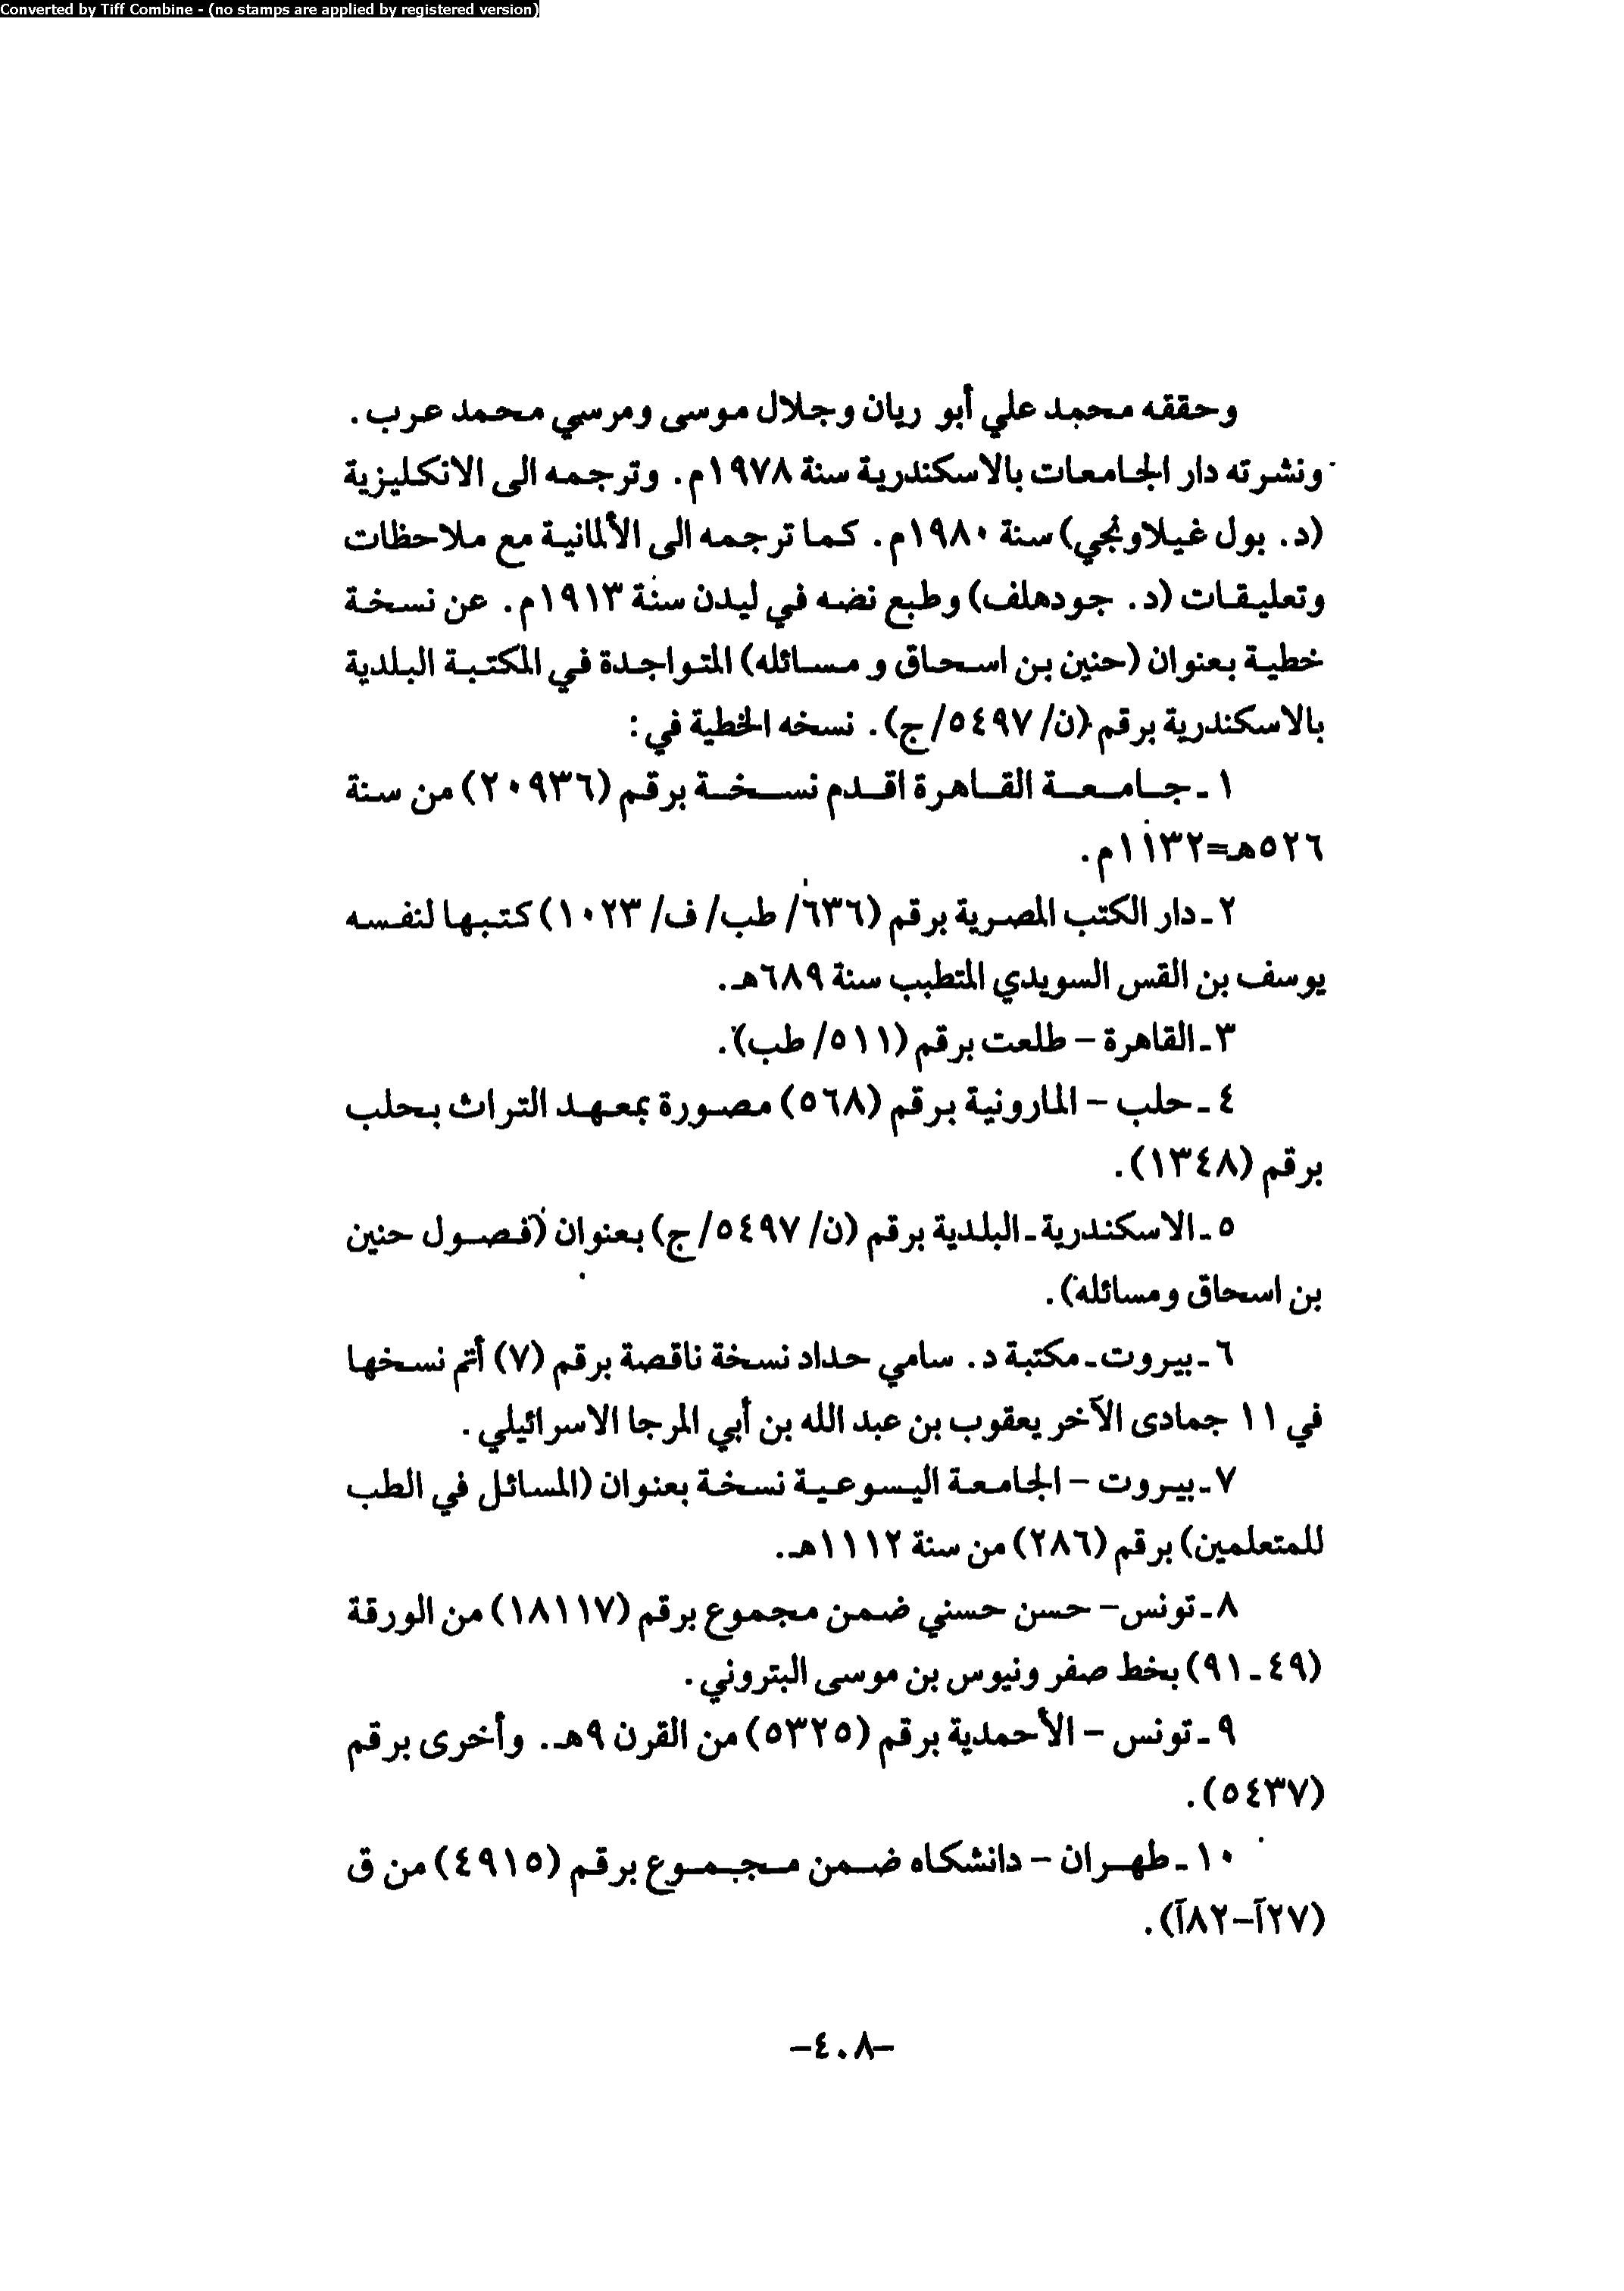 Converted by Tiff Combine - (no stamps are applied by registered version)
وحققه محمد علي أبو ريان وجلال موسى ومرسي محمد عرب.
ونشرته دار الجامعات بالاسكندرية سنة ١٩٧٨م. وترجمه الى الانكليزية
(د. بول غيلاونجي) سنة ١٩٨٠م. كما ترجمه الى الألمانية مع ملاحظات
وتعليقات (د. جودهلف) وطبع نضه في ليدن سنة ١٩١٣م. عن نسخة
خطية بعنوان (حنين بن اسحاق و مسائله) المتواجدة في المكتبة البلدية
بالاسكندرية برقم (ن/ ٥٤٩٧/ج). نسخه الخطية في:
١ـ جامعة القاهرة اقدم نسخة برقم (٢٠٩٣٦) من سنة
٥٢٦هـ=١١٣٢م.
٢ـ دار الكتب المصرية برقم (٦٣٦/ طب/ ف/ ١٠٢٣) كتبها لنفسه
يوسف بن القس السويدي المتطبب سنة ٦٨٩هـ.
٣ـ القاهرة – طلعت برقم (٥١١/ طب).
٤ـ حلب – المارونية برقم (٥٦٨) مصورة بمعهد التراث بحلب
برقم (١٣٤٨).
٥ـ الاسكندرية ـ البلدية برقم (ن/ ٥٤٩٧/ج) بعنوان (فصول حنين
بن اسحاق ومسائله).
٦ـ بيروت ـ مكتبة د. سامي حداد نسخة ناقصة برقم (٧) أتم نسخها
في ١١ جمادى الآخر يعقوب بن عبد الله بن أبي المرجا الاسرائيلي.
٧ـ بيروت – الجامعة اليسوعية نسخة بعنوان (المسائل في الطب
للمتعلمين) برقم (٢٨٦) من سنة ١١١٢هـ.
٨ـ تونس – حسن حسني ضمن مجموع برقم (١٨١١٧) من الورقة
(٤٩ـ٩١) بخط صفر ونيوس بن موسى البتروني.
٩ـ تونس – الأحمدية برقم (٥٣٢٥) من القرن ٩هـ. وأخرى برقم
(٥٤٣٧).
١٠ـ طهران – دانشكاه ضمن مجموع برقم (٤٩١٥) من ق
(٢٧آ–٨٢آ).
–٤٠٨–